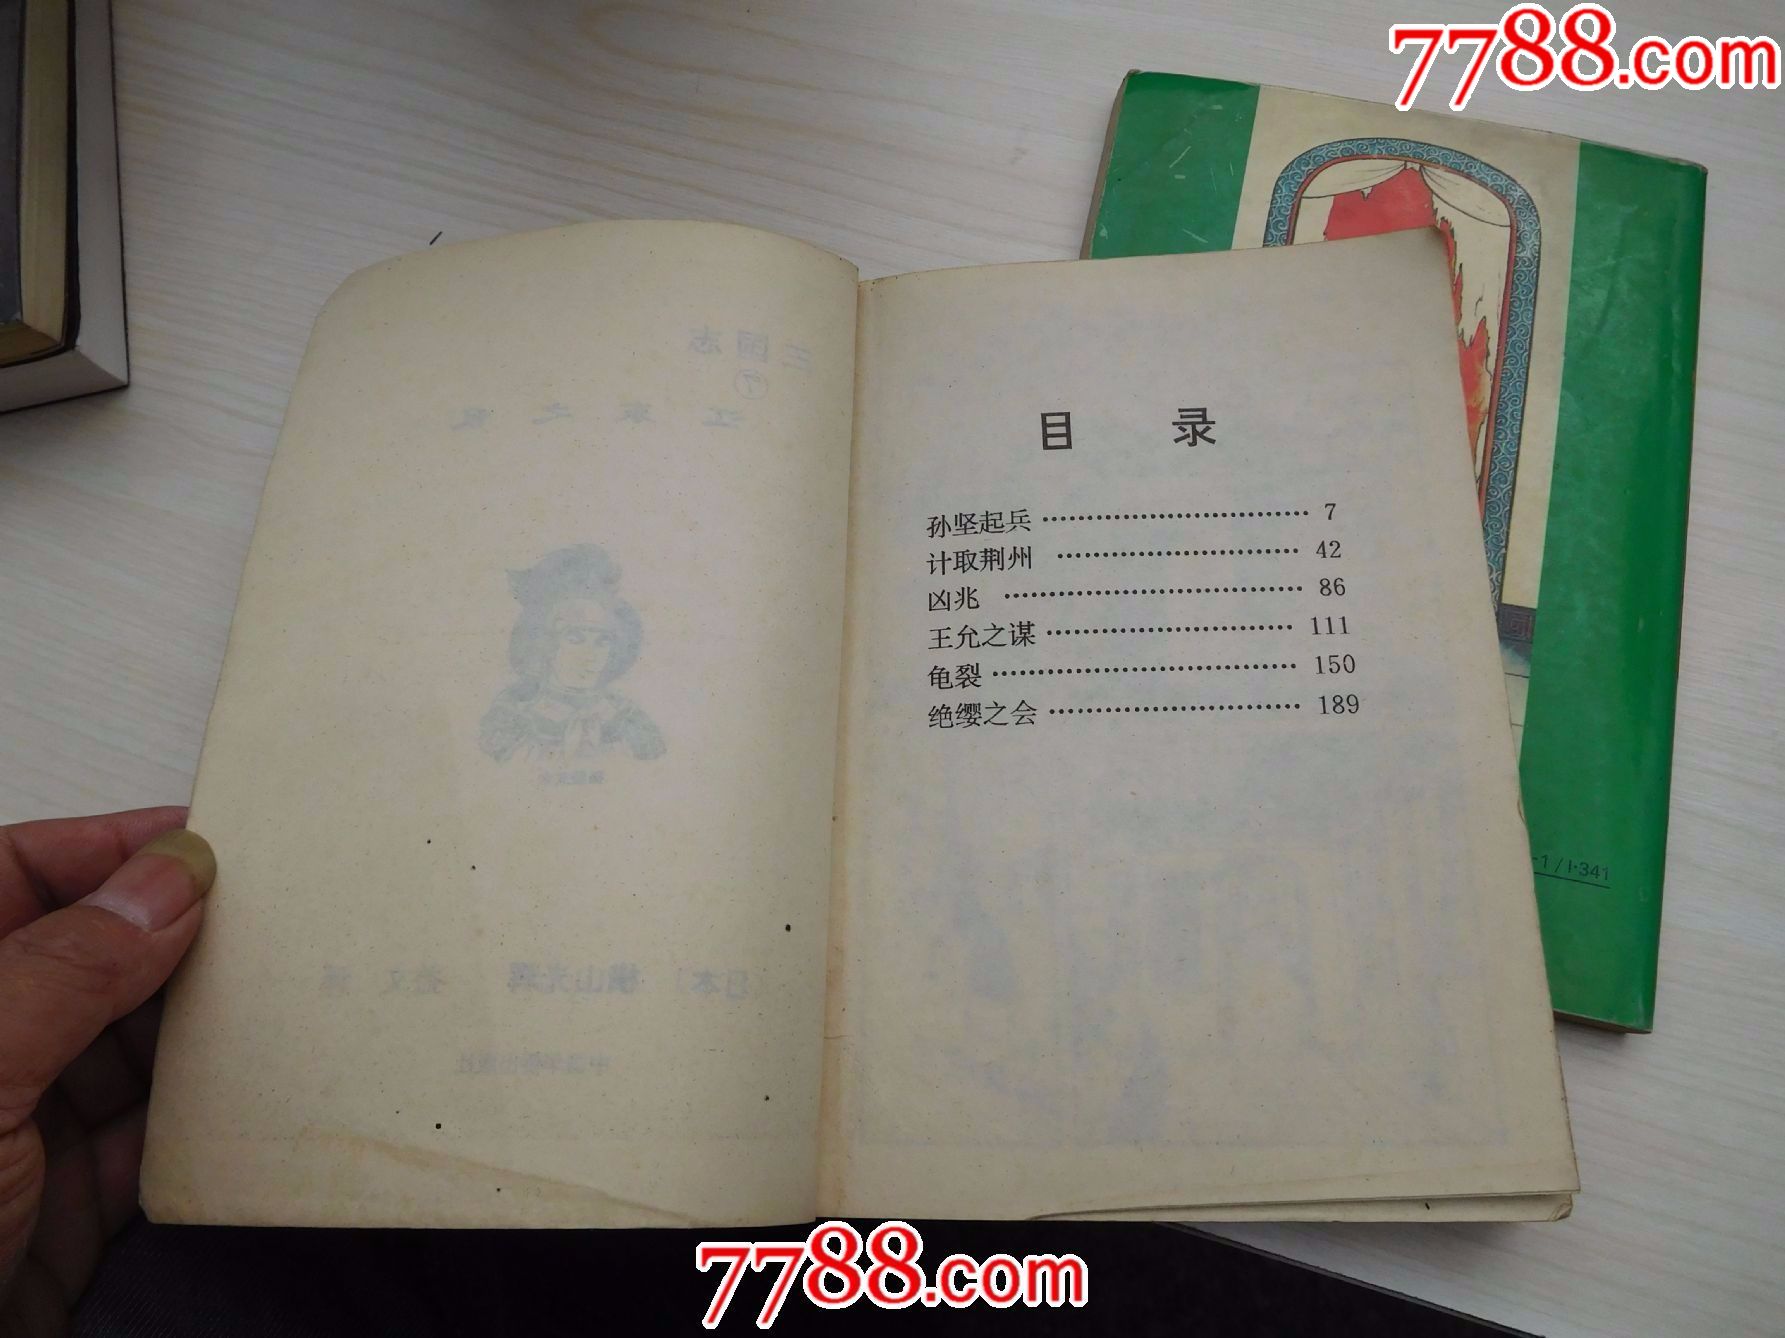 7788.com
三国志
⑦
目 录
孙坚起兵 …………………………… 7
计取荆州 ………………………… 42
凶兆 ……………………………… 86
王允之谋 ………………………… 111
龟裂 ……………………………… 150
绝缨之会 ………………………… 189
-1/I·341
横山光辉
7788.com